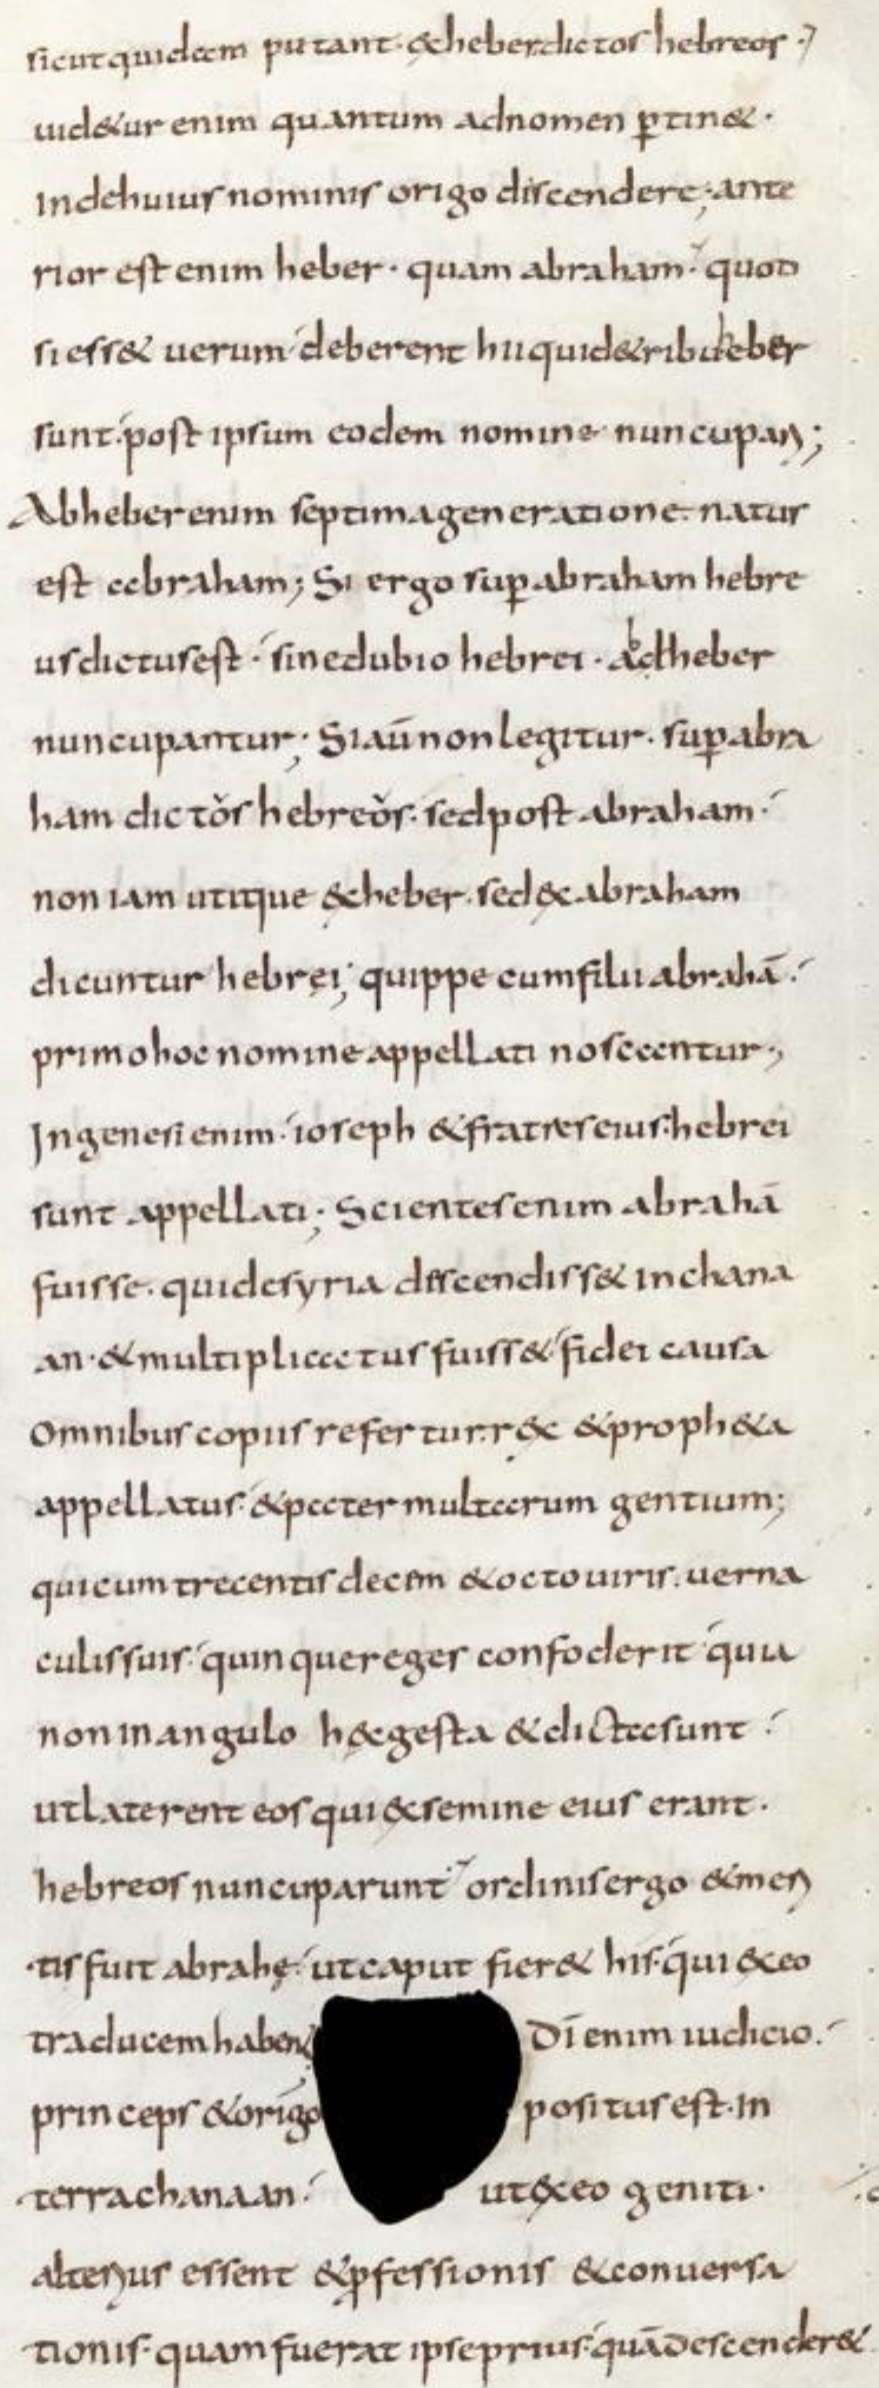 sicut quidam putant. ex heber dictos hebreos.
uid&ur enim quantum ad nomen ꝑtin&.
Inde huius nominis origo discendere; ante
rior est enim heber. quam abraham. quod
si ess& uerum deberent hii quid&ribus heber
sunt. post ipsum eodem nomine nuncupari;
Ab heber enim septima generatione. natus
est abraham; Si ergo suꝑ abraham hebre
us dictus est. sine dubio hebrei. ab heber
nuncupantur; Si aū non legitur. suꝑ abra
ham dictos hebreos. sed post abraham.
non iam utique ex heber. sed ex abraham
dicuntur hebręi; quippe cum filii abrahā.
primo hoc nomine appellati noscantur;
In genesi enim. ioseph & fratres eius. hebrei
sunt appellati; Scientes enim abrahā
fuisse. qui de syria descendiss& in chana
an. & multiplicatus fuiss& fidei causa
Omnibus copiis refertur. rex & proph&a
appellatus. & pater multarum gentium;
qui cum trecentis decem & octo uiris. uerna
culis suis. quinque reges confoderit quia
non in angulo hęc gesta & dicta sunt.
ut laterent eos qui ex semine eius erant.
hebreos nuncuparunt ordinis ergo & meri
tis fuit abrahę. ut caput fier& his. qui ex eo
traducem haben& Dī enim iudicio.
princeps & origo positus est. in
terra chanaan. ut ex eo geniti.
alterius essent & ꝓfessionis & conuersa
tionis. quam fuerat ipse prius. quā descender&